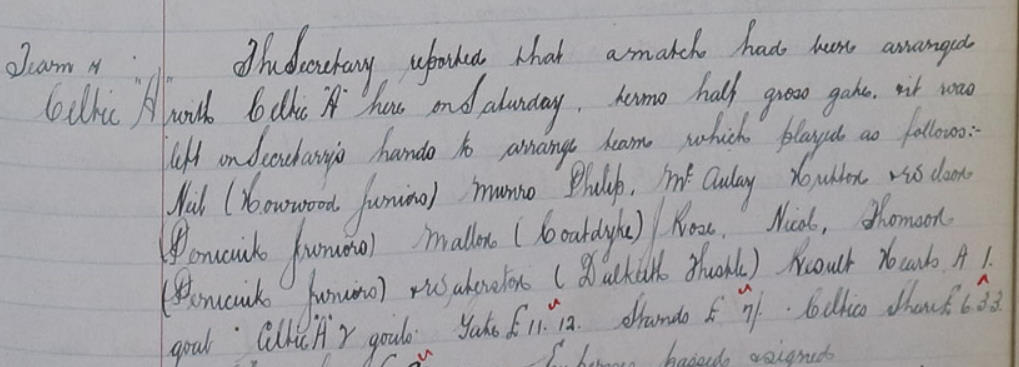 Team v The Secretary reported that a match had been arranged
Celtic "A" with Celtic "A" here on Saturday, terms half gross gate. it was
left in Secretary's hands to arrange team which played as follows:-
Neil (Lourwood Juniors) Munro Philip, McAulay Hutton
(Penicuik Juniors) Mallon (Coatdyke) Rose, Nicol, Thomson
(Penicuik Juniors) (Dalkeith Thistle) Result Hearts A 1.
goal Celtic "A" 2 goals. Gate £11.12. Stands £ 7/. Celtics Share £6.3.3.
passed & signed